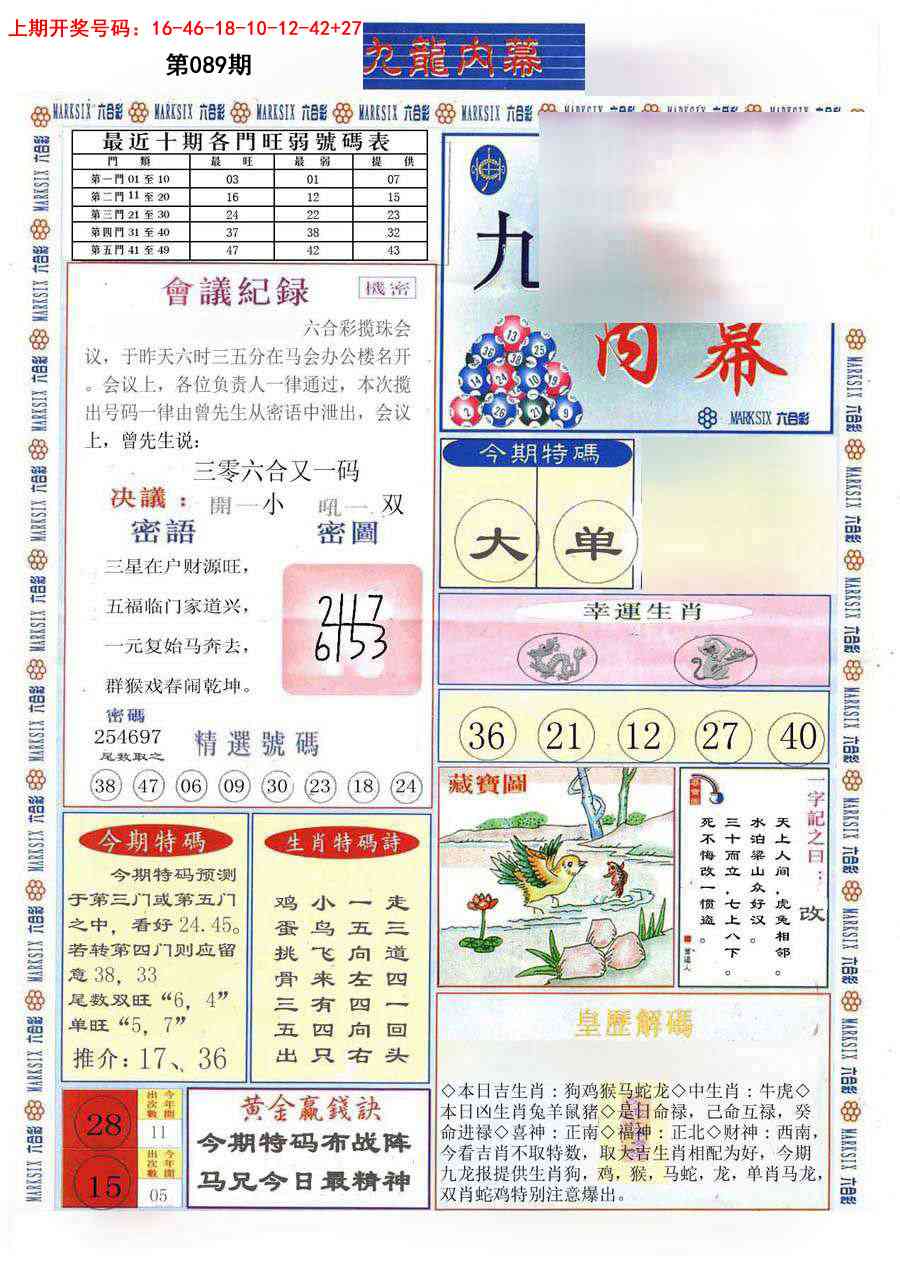 上期开奖号码：16-46-18-10-12-42+27
第089期
九龍内幕
MARKSIX 六合彩 MARKSIX 六合彩 MARKSIX 六合彩 MARKSIX 六合彩 MARKSIX 六合彩
最近十期各門旺弱號碼表
門 類 最 旺 最 弱 提 供
第一門 01 至 10 03 01 07
第二門 11 至 20 16 12 15
第三門 21 至 30 24 22 23
第四門 31 至 40 37 38 32
第五門 41 至 49 47 42 43
會議紀録
機密
六合彩搅珠会
议，于昨天六时三五分在马会办公楼名开
。会议上，各位负责人一律通过，本次搅
出号码一律由曾先生从密语中泄出，会议
上，曾先生说：
三零六合又一码
决議： 開一小 吼一 双
密語 密圖
三星在户财源旺，
五福临门家道兴，
一元复始马奔去，
群猴戏春闹乾坤。
2117
6153
密碼
254697
尾数取之
精選號碼
38 47 06 09 30 23 18 24
九
内幕
13
36 38 25
14 24 10 19
2 26 21 9
MARKSIX 六合彩
今期特碼
大 单
幸運生肖
36 21 12 27 40
藏寶圖
一字記之曰：
改
天上人间，虎兔相邻。
水泊梁山众好汉。
三十而立，七上八下。
死不悔改一惯盗。
今期特碼
今期特码预测
于第三门或第五门
之中，看好 24.45。
若转第四门则应留
意 38，33
尾数双旺“6，4”
单旺“5，7”
推介：17、36
生肖特碼詩
鸡 小 一 走
蛋 鸟 五 三
挑 飞 向 道
骨 来 左 四
三 有 四 一
五 四 向 回
出 只 右 头
28
今年開
出次數
11
15
今年開
出次數
05
黄金赢錢訣
今期特码布战阵
马兄今日最精神
皇歷解碼
◇本日吉生肖：狗鸡猴马蛇龙◇中生肖：牛虎◇
本日凶生肖兔羊鼠猪◇是日命禄，己命互禄，癸
命进禄◇喜神：正南◇福神：正北◇财神：西南，
今看吉肖不取特数，取大吉生肖相配为好，今期
九龙报提供生肖狗，鸡，猴，马蛇，龙，单肖马龙，
双肖蛇鸡特别注意爆出。